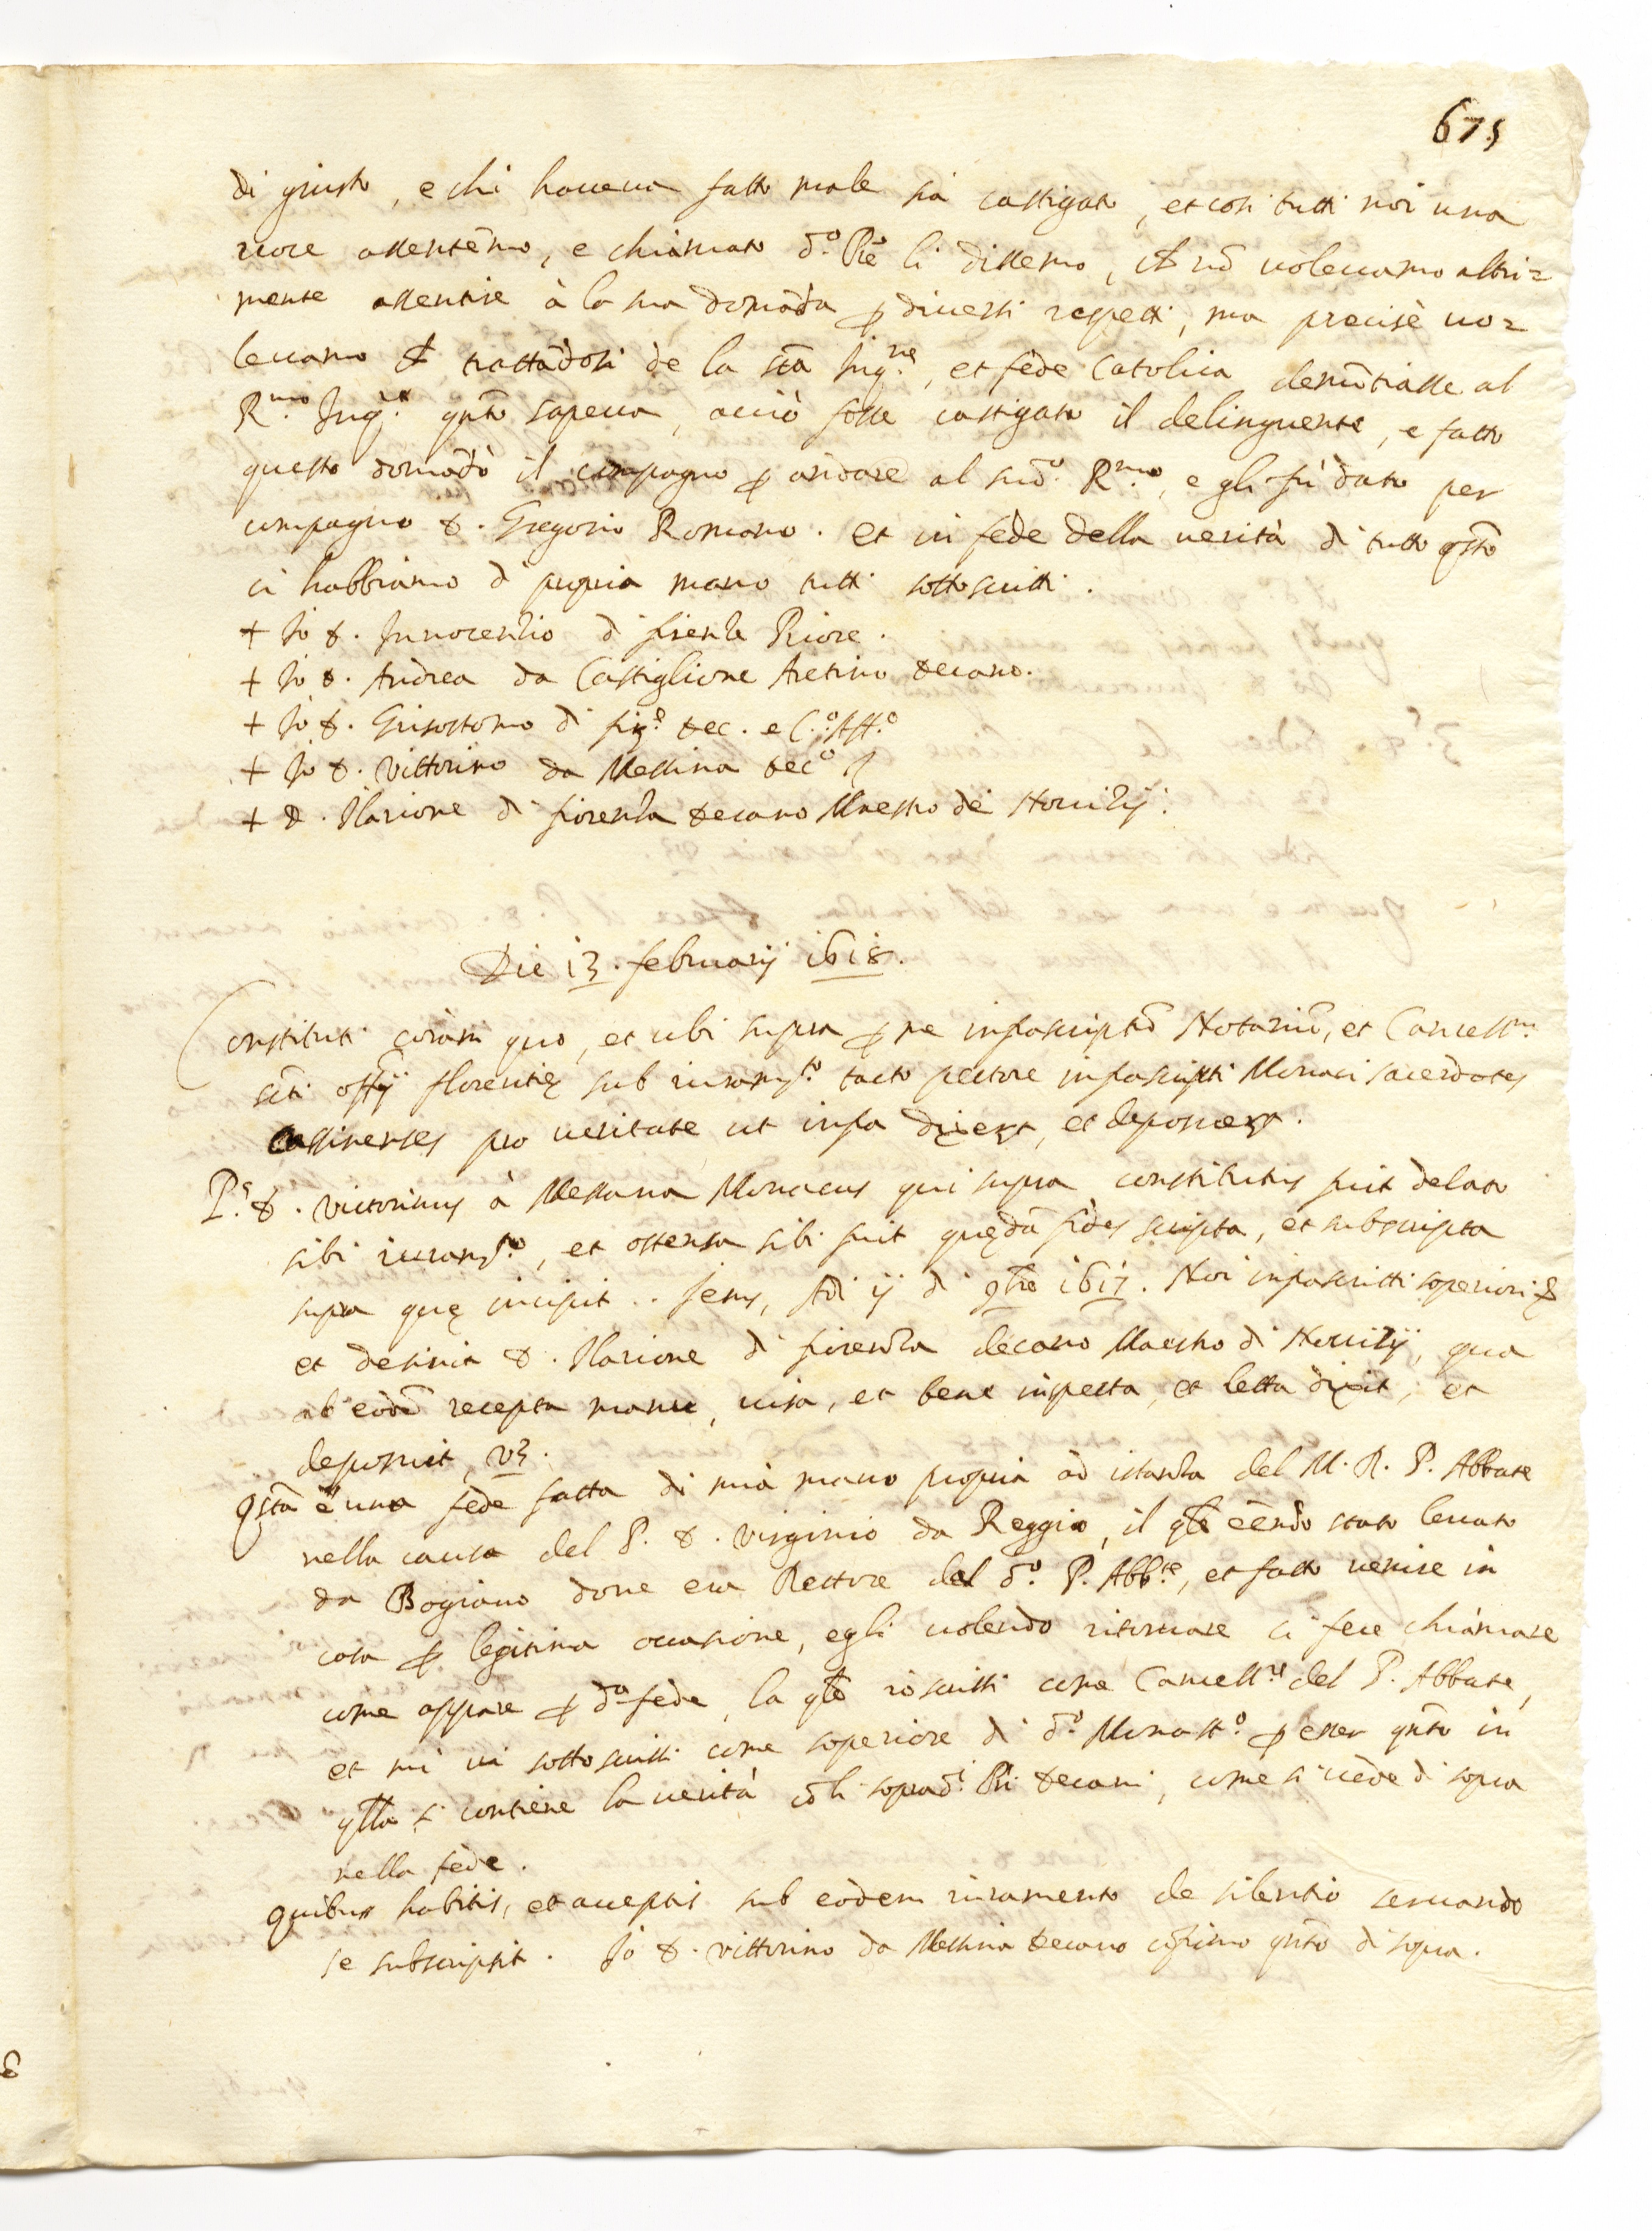 675
di giusto, e chi haueua fatto male sia castigato, et così tutti noi una
uoce assentēmo, e chiamato d.º Pre li dissemo, ch nō uoleuamo altri=
mente assentire à la sua domāda p diuersi rispetti, ma precisè uo=
leuamo ch trattādosi de la stā Inq.ne, et fede Catolica denūtiasse al
R.mo Inq.re qnto sapeua, acciò fosse castigato il delinquente, e fatto
questo domādò il compagno p andare al sud.º R.mo, e gli fù dato per
compagno D. Gregorio Romano. et in fede della uerità di tutto qsto
ci habbiamo di propria mano tutti sottoscritti.
+ Io D. Innocentio di firenze Priore.
+ Io D. Andrea da Castiglione Aretino Decano.
+ Io D. Grisostomo di fir.e Dec. e C.º Aff.º
+ Io D. Vittorino da Messina Dec.º
+ D. Ilarione di fiorenza Decano Maestro de Nouitij.
Die 13. februarij 1618.
Constituti corām quo, et ubi supra p me infrascriptū Notariū, et Cancell.m
scti offij florentię sub iuram.to tacto pectore infrascripti Monaci sacerdotes
Cassinenses pro ueritate ut infra dixert, et deposuert.
P.s D. Victorinus à Messana Monacus qui supra constitutus fuit delato
sibi iuram.to, et ostensa sibi fuit quędā fides scripta, et subscripta
supra quę incipit.. Jesus, Adi ij di 9bre 1617. Noi infrascritti soperiori &
et desinit D. Ilarione di fiorenza decano Maestro di Nouitij, qua
ab eodē recepta manu, uisa, et bene inspecta, et letta dixit, et
deposuit, vz.
Qsta è una fede fatta di mia mano propria ad istanza del M. R. P. Abbate
nella causa del P. D. Virginio da Reggio, il qle ēēndo stato leuato
da Bogiano doue era Rettore dal d.º P. Abb.te, et fatto uenire in
casa p legitima occasione, egli uolendo ritornare ci fece chiamare
come appare p d.a fede, la qle io scritti come Cancell.re del P. Abbate,
et mi ui sottoscritti come soperiore di d.º Monast.º p esser qnto in
qlla si contiene la uerità cō li soprad.i Pri Decani, come si uede di sopra
nella fede.
Quibus habitis, et acceptis sub eodem iuramento de silentio seruando
se subscripsit. Io D. Vittorino da Messina Decano cōfirmo qnto di sopra.